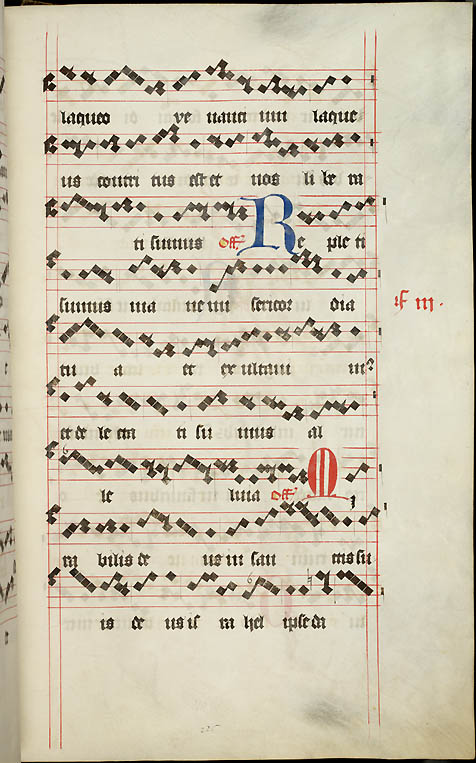 laqueo ve nanci um laque
us contri tus est et nos li be ra
ti sumus off Re ple ti
sumus ma ne mi sericor dia
tu a et ex ultaui m?
et de le cta ti su mus al
le luia off M
ra bilis de us in san ctis su
is de us is ra hel ipse da